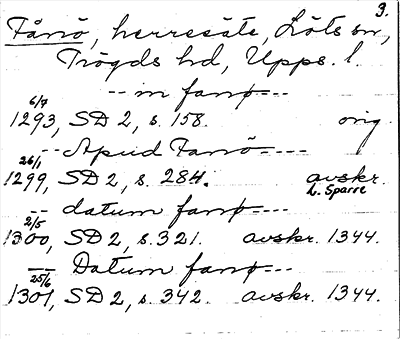 3.
Fånö, herresäte, Löts sn,
Trögds hd, Upps. l.
-- in fanø---
6/7
1293, SD 2, s. 158. orig.
-- Apud Fanö----
26/1
1299, SD 2, s. 284. avskr.
L. Sparre
-- datum fanø---
2/5
1300, SD 2, s. 321. avskr. 1344.
-- Datum fanø---
25/6
1301, SD 2, s. 342. avskr. 1344.